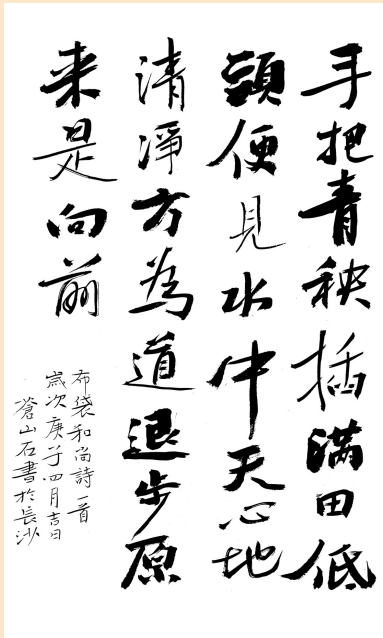 手把青秧插满田低
頭便見水中天心地
清淨方為道退步原
来是向前
布袋和尚詩一首
歲次庚子四月吉日
蒼山石書於長沙